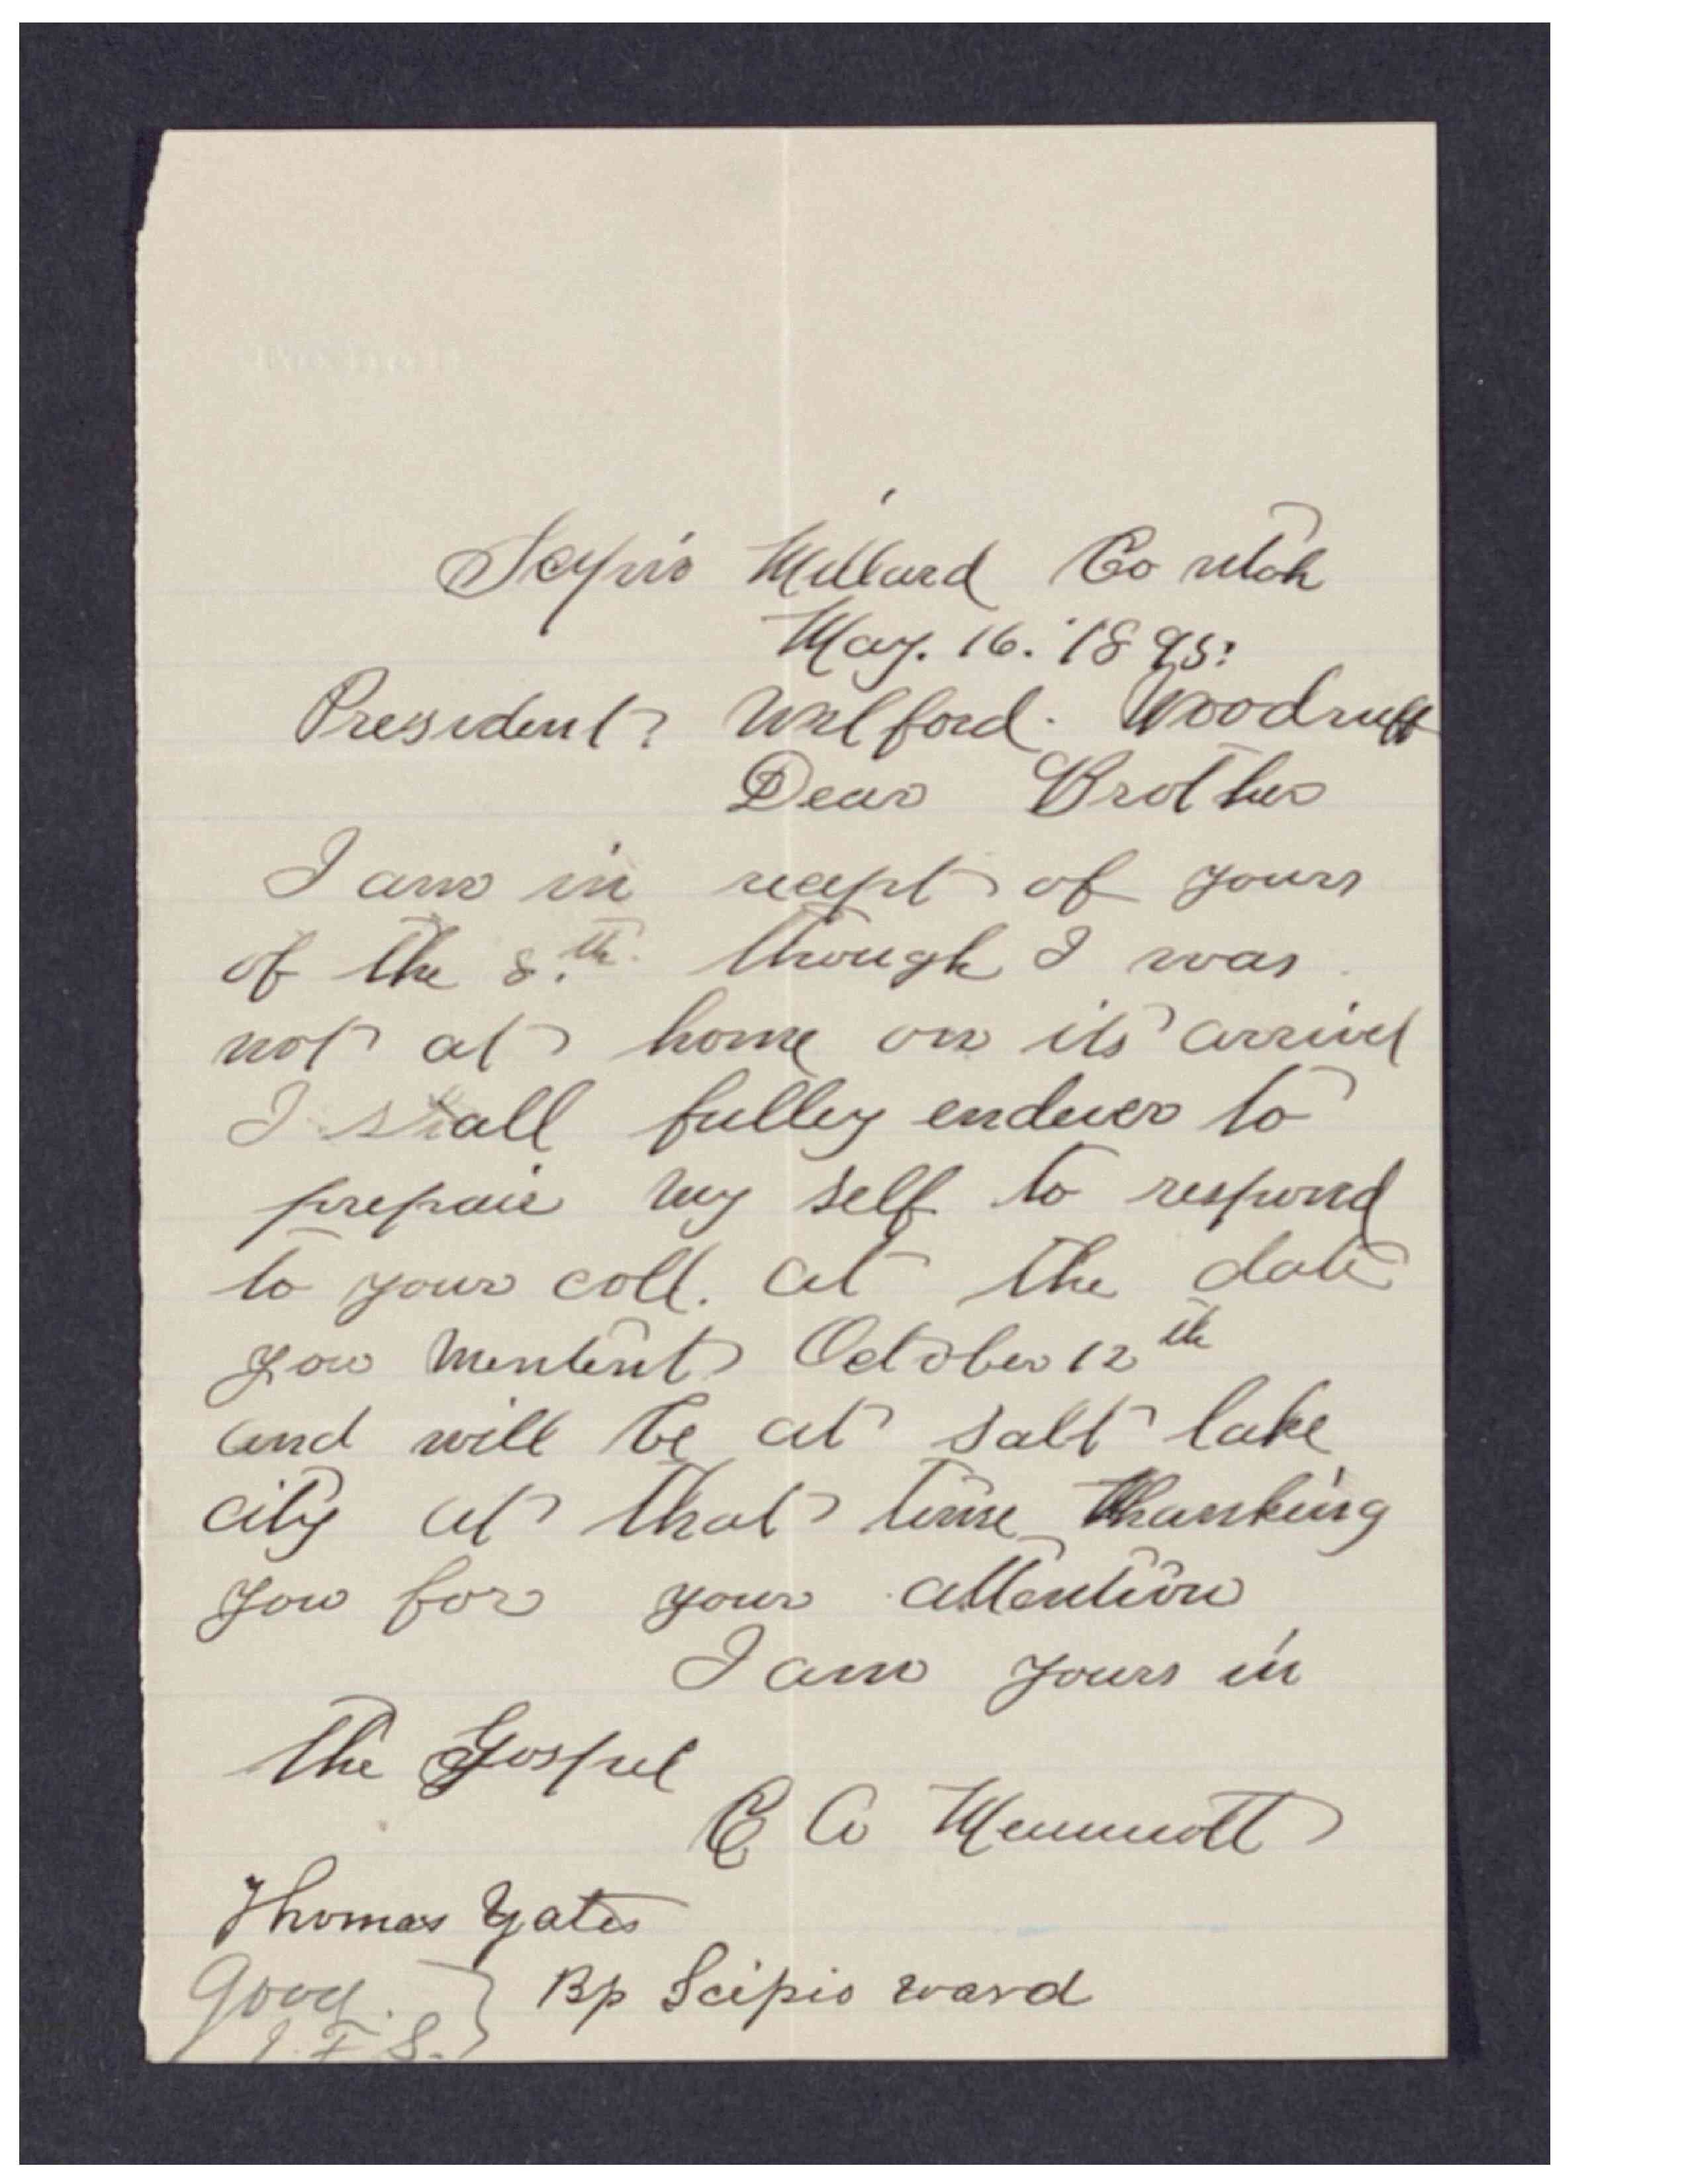 Scipio Millard Co utah
May. 16. 1895.
President. Wilford. Woodruff
Dear Brother
I am in recept of yours
of the 8.th though I was
not at home on its arrivel
I shall fulley endever to
prepair my self to respond
to your coll. at the date
you mentent October 12th
and will be at salt lake
city at that time thanking
you for your attention
I am yours in
the Gospel
E A Memmott
Thomas Yates
Bp Scipio ward
Good.
J. F. S.